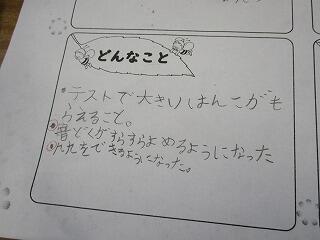 どんなこと
・テストで大きいはんこがも
らえること。
・音どくがすらすらよめるようになった
・九九をできるようになった。